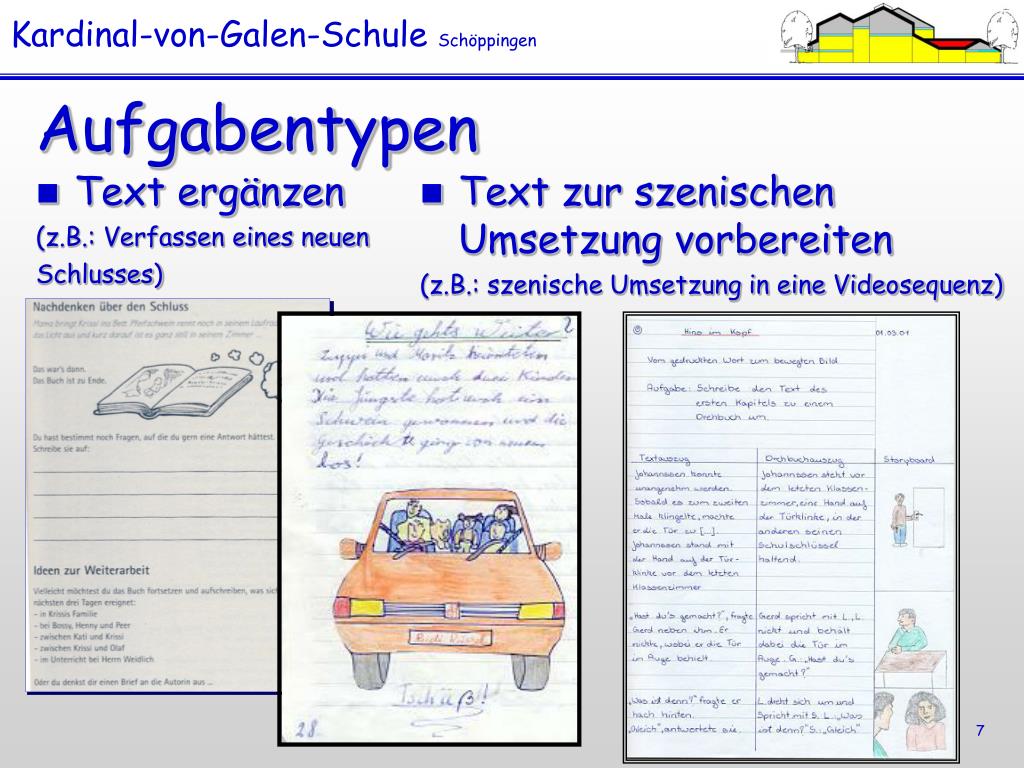 Kardinal-von-Galen-Schule Schöppingen
Aufgabentypen
Text ergänzen
(z.B.: Verfassen eines neuen
Schlusses)
Text zur szenischen
Umsetzung vorbereiten
(z.B.: szenische Umsetzung in eine Videosequenz)
Nachdenken über den Schluss
Mama bringt Krissi ins Bett. Pfeifschwein rennt noch in seinem Laufrad
das Licht aus und kurz darauf ist es ganz still in seinem Zimmer ...
Das war's dann.
Das Buch ist zu Ende.
Du hast bestimmt noch Fragen, auf die du gern eine Antwort hättest.
Schreibe sie auf:
Ideen zur Weiterarbeit
Vielleicht möchtest du das Buch fortsetzen und aufschreiben, was sich
nächsten drei Tagen ereignet:
– in Krissis Familie
– bei Bossy, Henny und Peer
– zwischen Kati und Krissi
– zwischen Krissi und Olaf
– im Unterricht bei Herrn Weidlich
Oder du denkst dir einen Brief an die Autorin aus ...
Wie gehts weiter?
und Moritz
und hatten noch drei Kinder
Die Jüngste hat noch ein
Schwein gewonnen und die
Geschichte ging von neuem
los!
Tschüß!
28
Kino im Kopf
01.03.01
Vom gedruckten Wort zum bewegten Bild
Aufgabe: Schreibe den Text des
ersten Kapitels zu einem
Drehbuch um.
Textauszug
Johannssen konnte
unangenehm werden.
Sobald es zum zweiten
Male klingelte, machte
er die Tür zu [...].
Johannssen stand mit
der Hand auf der Tür-
klinke vor dem letzten
Klassenzimmer
„Hast du's gemacht?", fragte
Gerd neben ihm. Er
nickte, wobei er die Tür
im Auge behielt.
„Was ist denn?" fragte er
nach hinten.
„Gleich", antwortete sie.
Drehbuchauszug
Johannssen steht vor
dem letzten Klassen-
zimmer, eine Hand auf
der Türklinke, in der
anderen seinen
Schulschlüssel
haltend.
Gerd spricht mit L., L.
nickt und behält
dabei die Tür im
Auge. G.: „Hast du's
gemacht?"
L. dreht sich um und
spricht mit S. L.: „Was
ist denn?" S.: „Gleich"
Storyboard
7